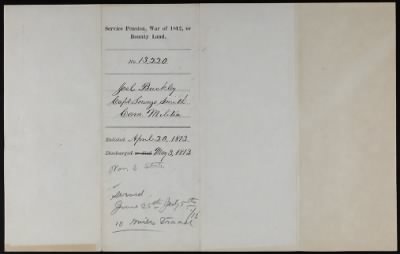 Service Pension, War of 1812, or
Bounty Land.
No. 13,220
Joel Buckley
Capt George Smith
Conn. Militia
Enlisted April 20, 1813
Discharged or died May 3, 1813
Served
June 25th July 5th
10 miles Travel